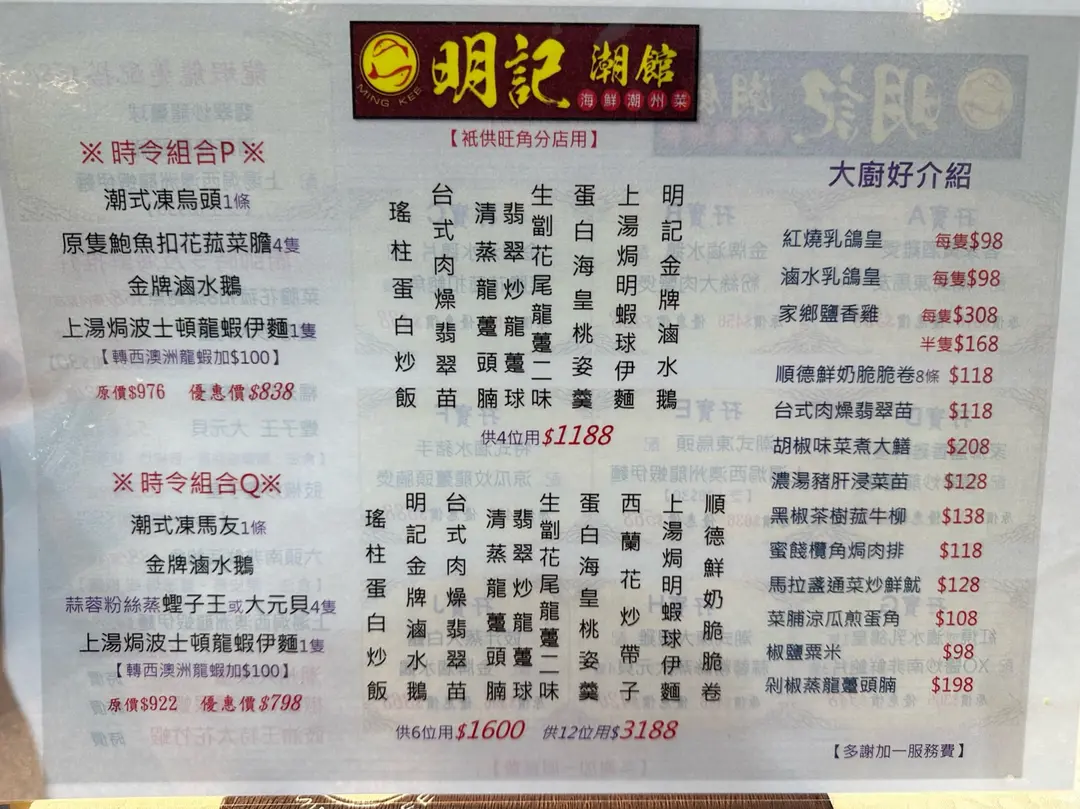 MING KEE
明記 潮館
海鮮潮州菜
【祇供旺角分店用】
※時令組合P※
潮式凍烏頭1條
原隻鮑魚扣花菰菜膽4隻
金牌滷水鵝
上湯焗波士頓龍蝦伊麵1隻
【轉西澳洲龍蝦加$100】
原價$976 優惠價$838
※時令組合Q※
潮式凍馬友1條
金牌滷水鵝
蒜蓉粉絲蒸蟶子王或大元貝4隻
上湯焗波士頓龍蝦伊麵1隻
【轉西澳洲龍蝦加$100】
原價$922 優惠價$798
明記金牌滷水鵝
上湯焗明蝦球伊麵
蛋白海皇桃姿羹
生劏花尾龍躉二味
翡翠炒龍躉球
清蒸龍躉頭腩
台式肉燥翡翠苗
瑤柱蛋白炒飯
供4位用$1188
順德鮮奶脆脆卷
上湯焗明蝦球伊麵
西蘭花炒帶子
蛋白海皇桃姿羹
生劏花尾龍躉二味
翡翠炒龍躉球
清蒸龍躉頭腩
台式肉燥翡翠苗
明記金牌滷水鵝
瑤柱蛋白炒飯
供6位用$1600 供12位用$3188
大廚好介紹
紅燒乳鴿皇 每隻$98
滷水乳鴿皇 每隻$98
家鄉鹽香雞 每隻$308
半隻$168
順德鮮奶脆脆卷8條 $118
台式肉燥翡翠苗 $118
胡椒味菜煮大鱔 $208
濃湯豬肝浸菜苗 $128
黑椒茶樹菰牛柳 $138
蜜餞欖角焗肉排 $118
馬拉盞通菜炒鮮魷 $128
菜脯涼瓜煎蛋角 $108
椒鹽粟米 $98
剁椒蒸龍躉頭腩 $198
【多謝加一服務費】